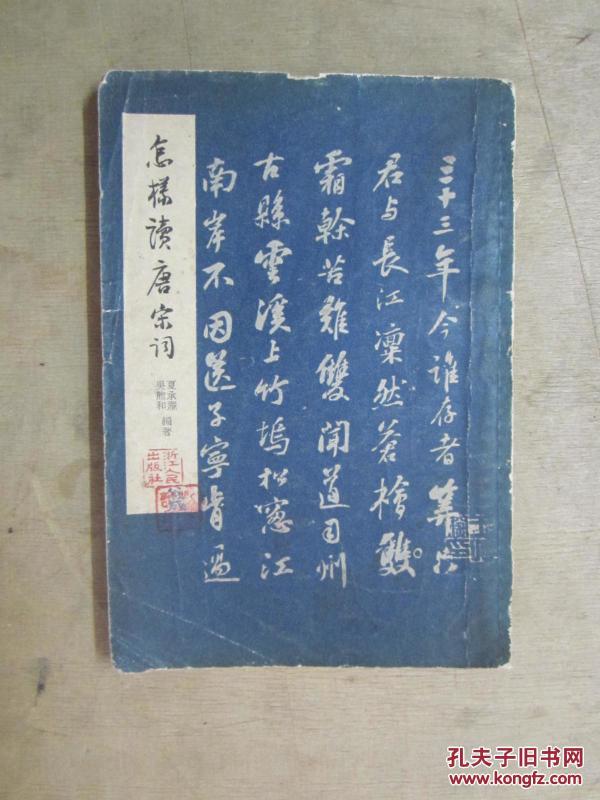 三十三年今誰存者算只
君与長江凜然蒼檜雙
霜幹苦難雙聞道司州
古縣雲溪上竹塢松窓江
南岸不因送子寧肯過
怎樣讀唐宋词
夏承燾
吳熊和
編著
浙江人民
出版社
孔夫子旧书网
www.kongfz.com